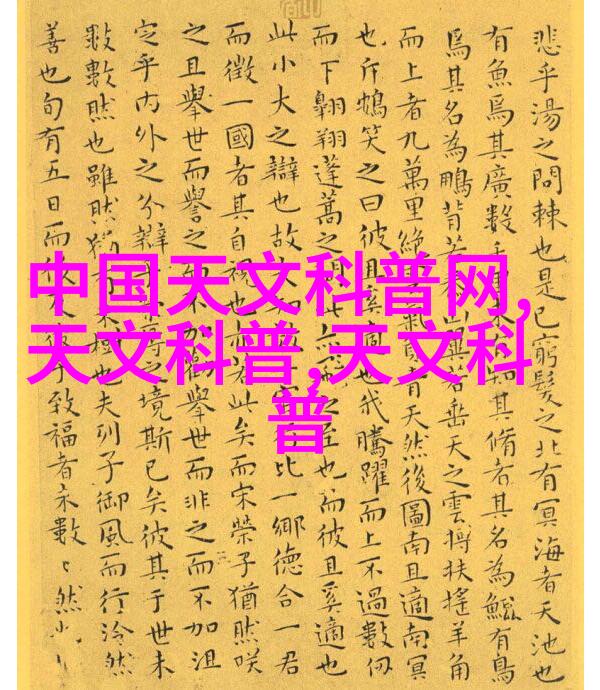 中国天文科普网,
天文科普,天文科
普
悲乎湯之問棘也是已窮髮之北有冥海者天池也
有魚焉其廣數千里未有知其脩者其名為鯤有鳥
焉其名為鵬背若泰山翼若垂天之雲摶扶搖羊角
而上者九萬里絶雲氣負青天然後圖南且適南冥
也斥鴳笑之曰彼且奚適也我騰躍而上不過數仞
而下翱翔蓬蒿之間此亦飛之至也而彼且奚適也
此小大之辯也故夫知一官行比一鄉德合一君
而徵一國者其自視也亦若此矣而宋榮子猶然咲
之且舉世而譽之而不加勸舉世而非之而不加沮
定乎內外之分辯乎榮辱之境斯已矣彼其于世未
數數然也雖然猶有未樹也夫列子御風而行泠然
善也旬有五日而後反彼于致福者未數〻然也